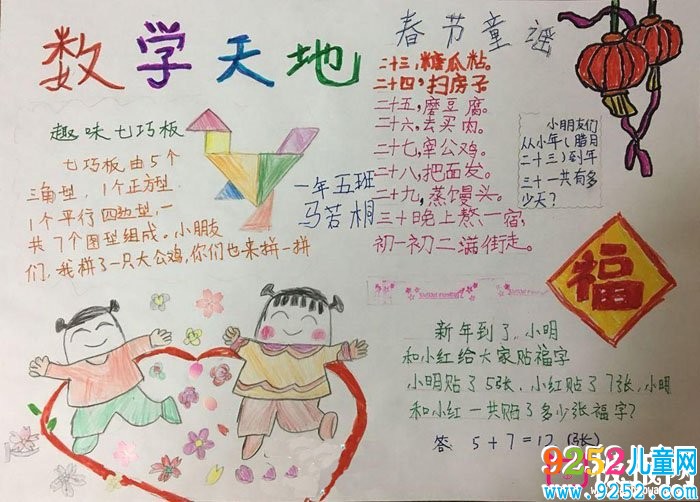 数学天地
趣味七巧板
七巧板由5个
三角型，1个正方型.
1个平行四边型,一
共7个图型组成。小朋友
们，我拼了一只大公鸡，你们也来拼一拼
一年五班
马若桐
春节童谣
二十三，糖瓜粘。
二十四，扫房子
二十五，磨豆腐。
二十六，去买肉。
二十七，宰公鸡。
二十八，把面发。
二十九，蒸馒头。
三十晚上熬一宿，
初一初二满街走。
小朋友们
从小年(腊月
二十三)到年
三十一共有多
少天?
福
新年到了，小明
和小红给大家贴福字
小明贴了5张，小红贴了7张，小明
和小红一共贴了多少张福字?
答 5+7=12(张)
9252儿童网
www.9252.com